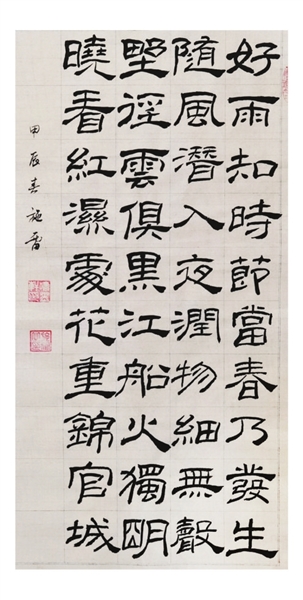 好雨知時節當春乃發生
隨風潛入夜潤物細無聲
野徑雲俱黑江船火獨明
曉看紅濕處花重錦官城
甲辰春施雷